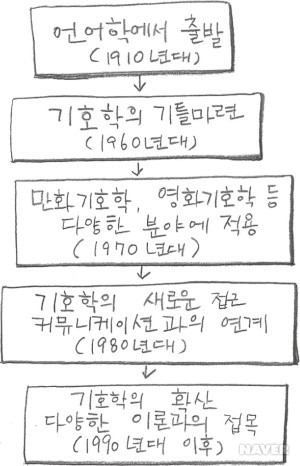 언어학에서 출발
(1910년대)
기호학의 기틀마련
(1960년대)
만화기호학, 영화기호학 등
다양한 분야에 적용
(1970년대)
기호학의 새로운 접근
커뮤니케이션과의 연계
(1980년대)
기호학의 확산
다양한 이론과의 접목
(1990년대 이후)
NAVER